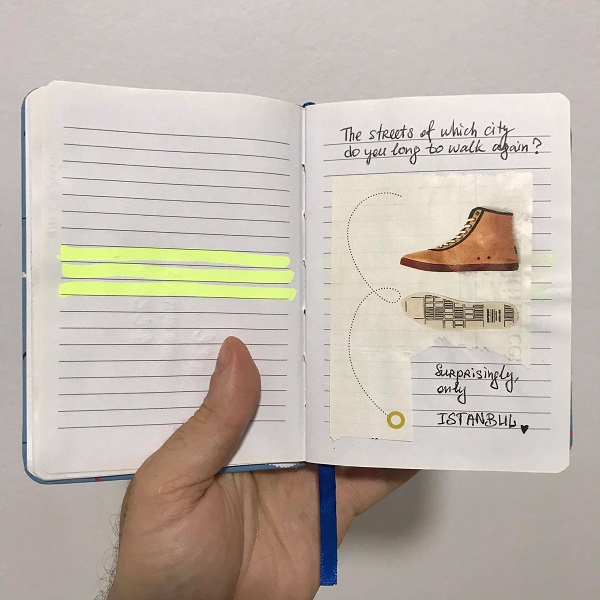 The streets of which city
do you long to walk again?
Surprisingly,
only
ISTANBUL